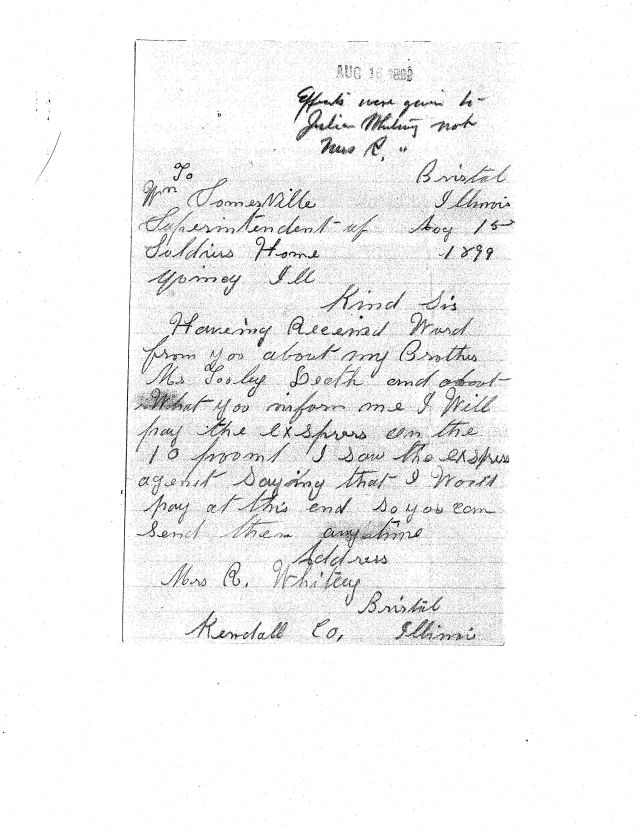 AUG 16 1899
Effects were given to
Julian Whitney not
Mrs R. "
To Bristol
Wm Somerville Illinois
Superintendent of Aog 15
Soldiers Home 1899
Qoincy Ill
Kind Sir
Haveing Receeived Word
from yoo about my Brother
Mr Tooley Death and about
What yoo inform me I Will
pay the exspress on the
10 poond I saw the exspress
agent Saying that I Woold
pay at this end so yoo can
Send them anytime
Address
Mrs R. Whitney
Bristol
Kendall Co, Illinois